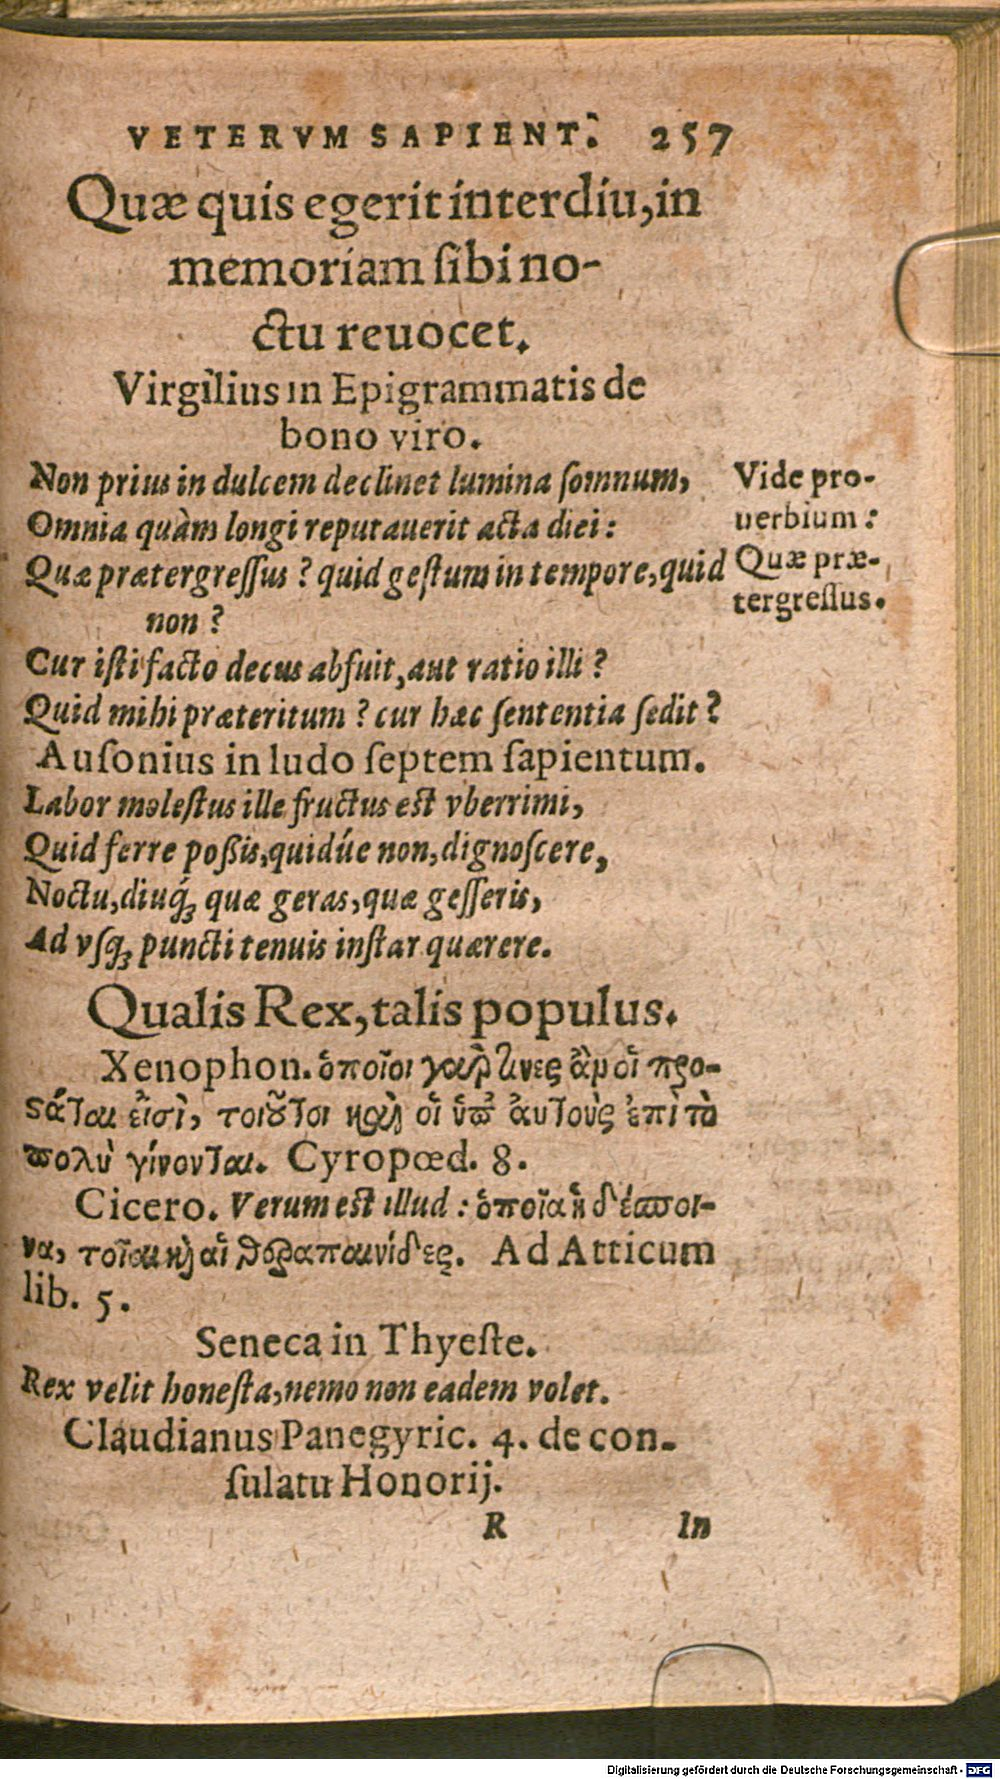 VETERVM SAPIENT. 257
Quæ quis egerit interdiu, in
memoriam sibi no-
ctu reuocet.
Virgilius in Epigrammatis de
bono viro.
Non prius in dulcem declinet lumina somnum,
Omnia quàm longi reputauerit acta diei:
Quæ prætergressus? quid gestum in tempore, quid
non?
Vide pro-
uerbium:
Quæ præ-
tergressus.
Cur isti facto decus absuit, aut ratio illi?
Quid mihi præteritum? cur hæc sententia sedit?
Ausonius in ludo septem sapientum.
Labor molestus ille fructus est vberrimi,
Quid ferre poßis, quidúe non, dignoscere,
Noctu, diuq́; quæ geras, quæ gesseris,
Ad vsq; puncti tenuis instar quærere.
Qualis Rex, talis populus.
Xenophon. ὁποῖοι γαρ τινες ἂν οἱ προ-
ςάται εἰσὶ, τοιοῦτοι καὶ οἱ ὑπ᾽ ἀυτοὺς ἐπὶ τὸ
πολὺ γίνονται. Cyropœd. 8.
Cicero. Verum est illud: ὁποῖα ἡ δέσποι-
να, τοῖαι καὶ αἱ θεραπαινίδες. Ad Atticum
lib. 5.
Seneca in Thyeste.
Rex velit honesta, nemo non eadem volet.
Claudianus Panegyric. 4. de con-
sulatu Honorij.
R In
Digitalisierung gefördert durch die Deutsche Forschungsgemeinschaft - DFG